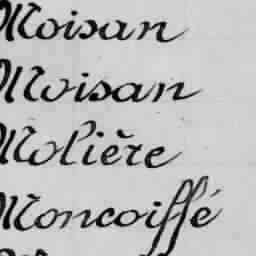 Moisan
Moisan
Molière
Moncoiffé